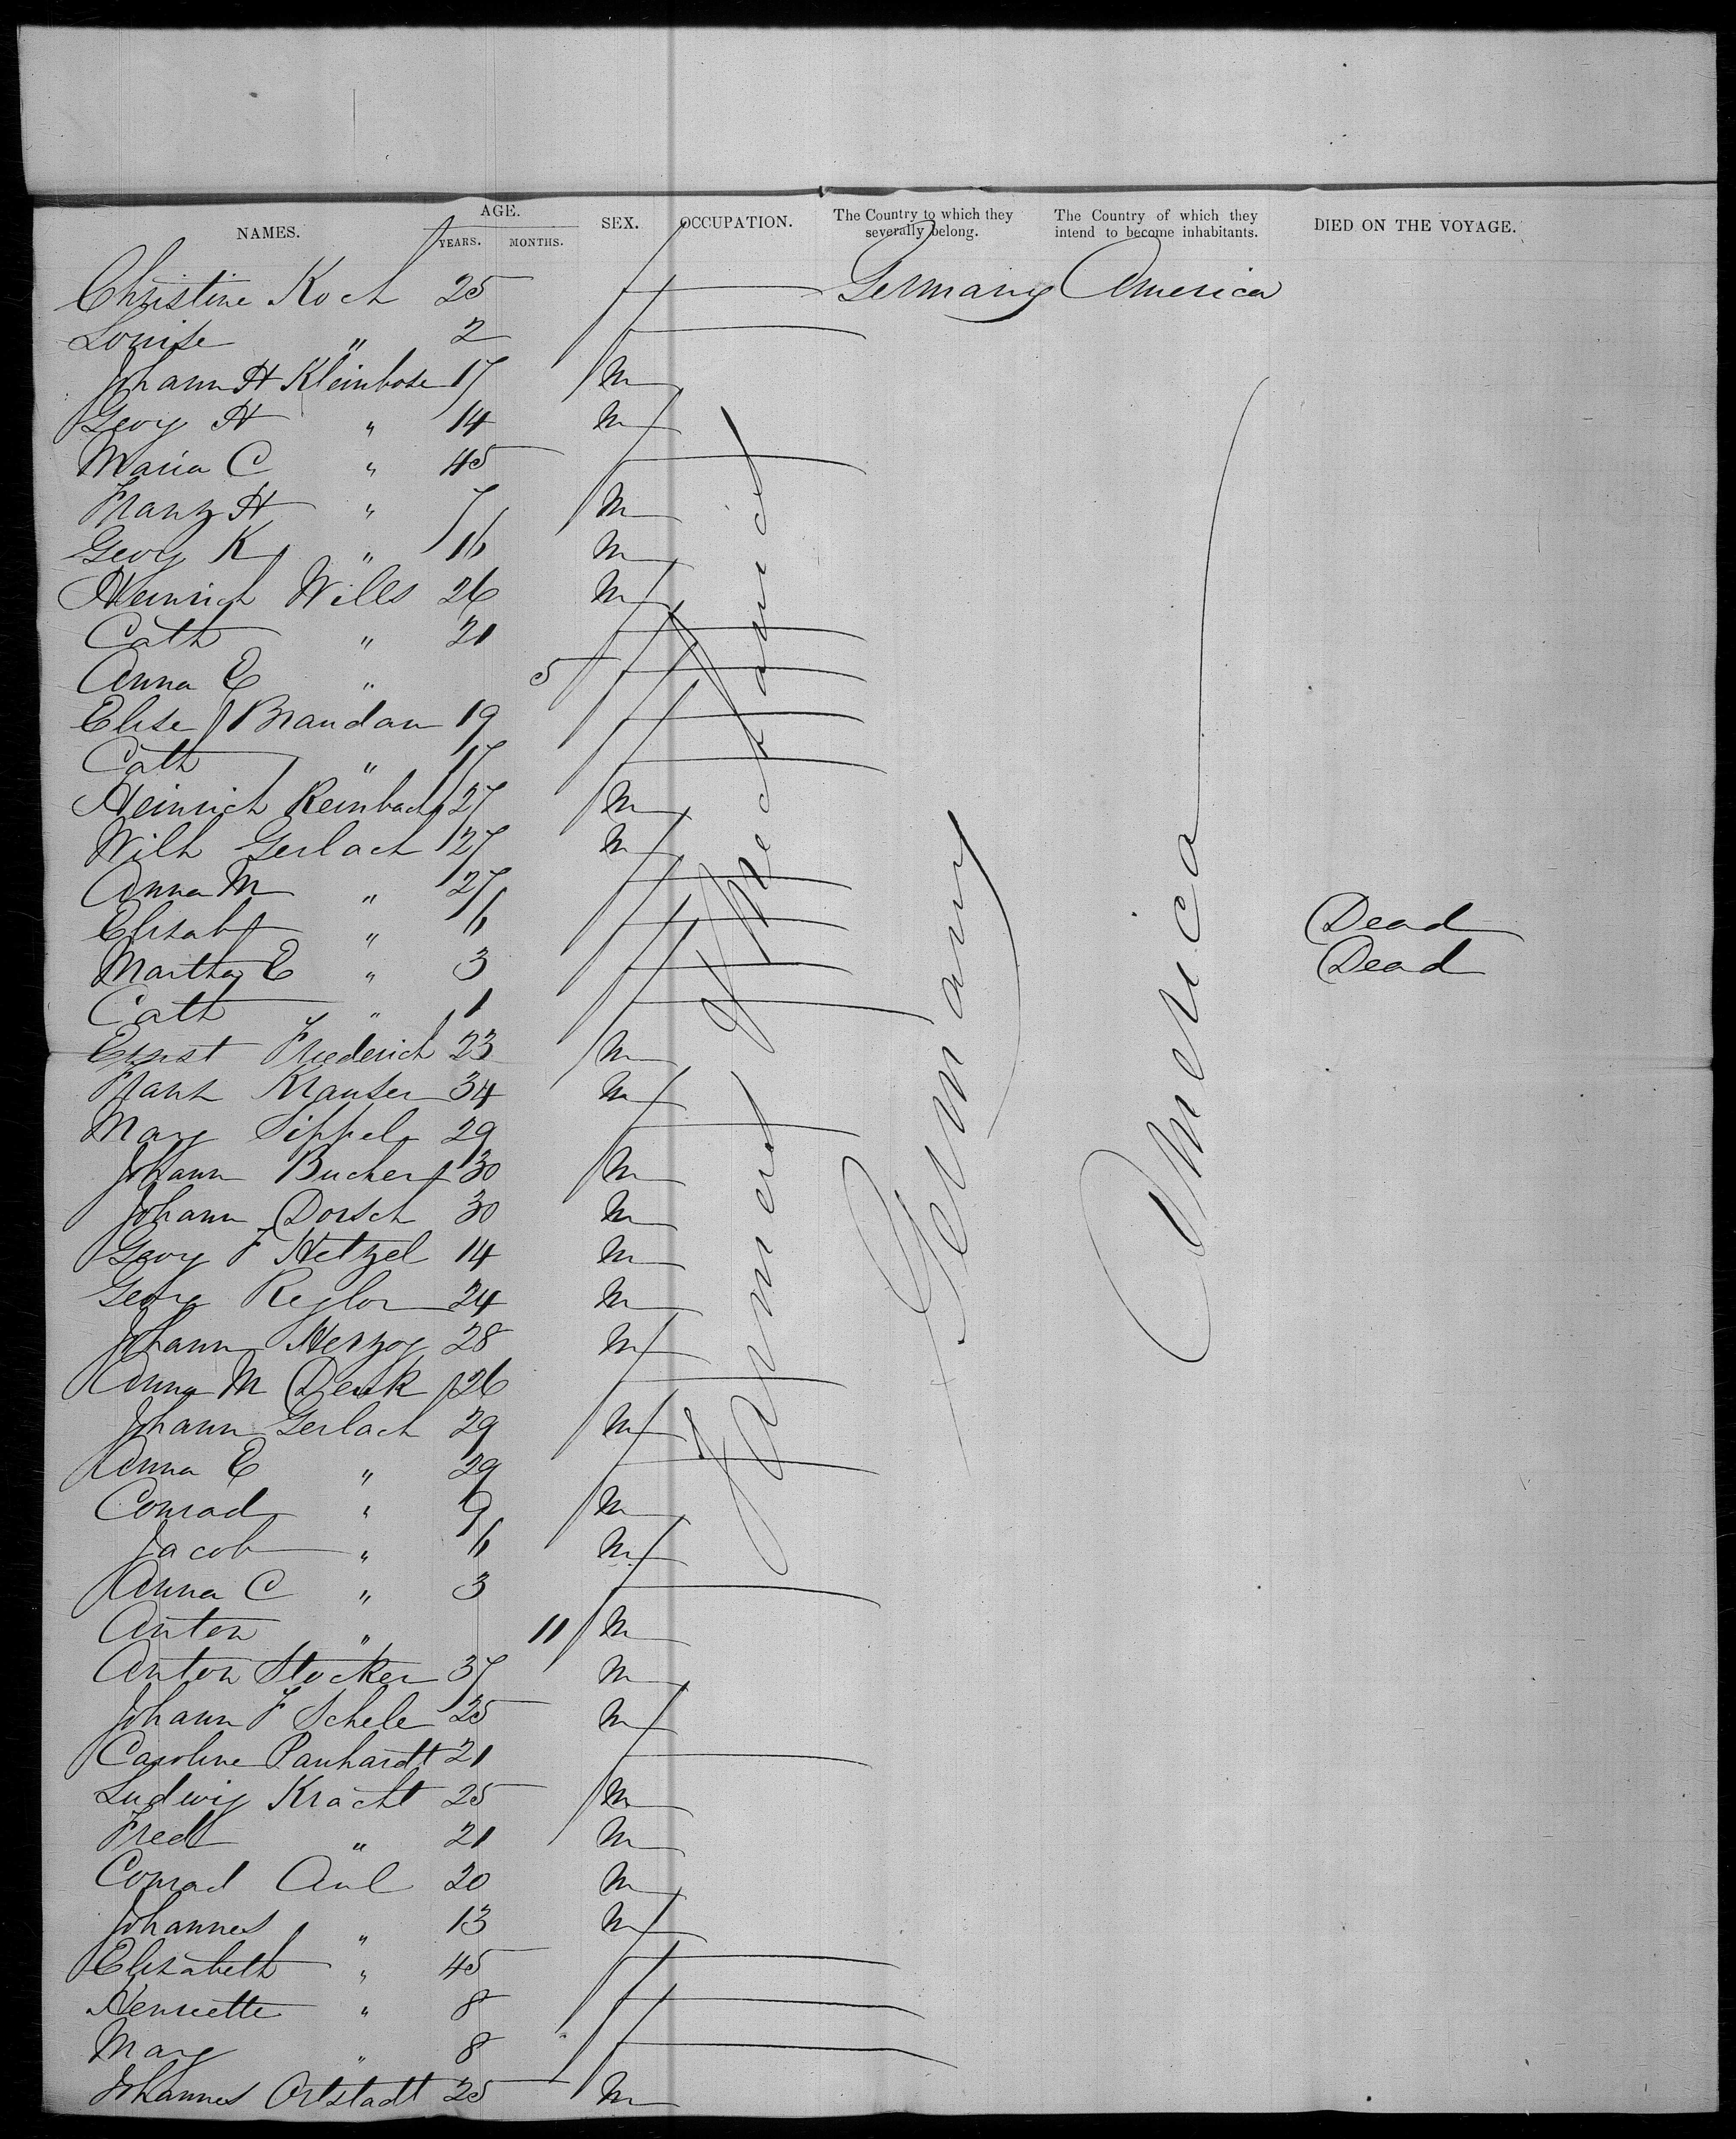 NAMES. AGE. YEARS. MONTHS. SEX. OCCUPATION. The Country to which they severally belong. The Country of which they intend to become inhabitants. DIED ON THE VOYAGE.
Christine Koch 25 f Germany America
Louise " 2 f
Johann H Kleinhose 17 m
Georg H " 14 m
Maria C " 45 f
Franz H " 7 m
Georg K " 16 m
Heinrich Wills 26 m
Cath " 21 f
Anna E " 5 f
Elise Brandau 19 f
Cath " 17 f
Heinrich Reinbach 27 m
Wilh Gerlach 27 m
Anna M " 27 f
Elisabt " 6 f Dead
Martha E " 3 f Dead
Cath " 1 f
Ernst Friederich 23 m
Frank Krauser 34 m
Marg Sippel 29 f
Johann Buchert 30 m
Johann Dorsch 30 m
Georg F Hetzel 14 m
Georg Reglor 24 m
Johann Herzog 28 m
Anna M Denk 26 f
Johann Gerlach 29 m
Anna E " 29 f
Conrad " 9 m
Jacob " 6 m
Anna C " 3 f
Anton " 11 m
Anton Stocker 37 m
Johann F Schele 25 m
Caroline Panhardt 21 f
Ludwig Kracht 25 m
Fred " 21 m
Conrad Aul 20 m
Johannes " 13 m
Elisabeth " 45 f
Henriette " 8 f
Marg " 8 f
Johannes Ortstadt 25 m
Farmers & Mechanics
Germany
America